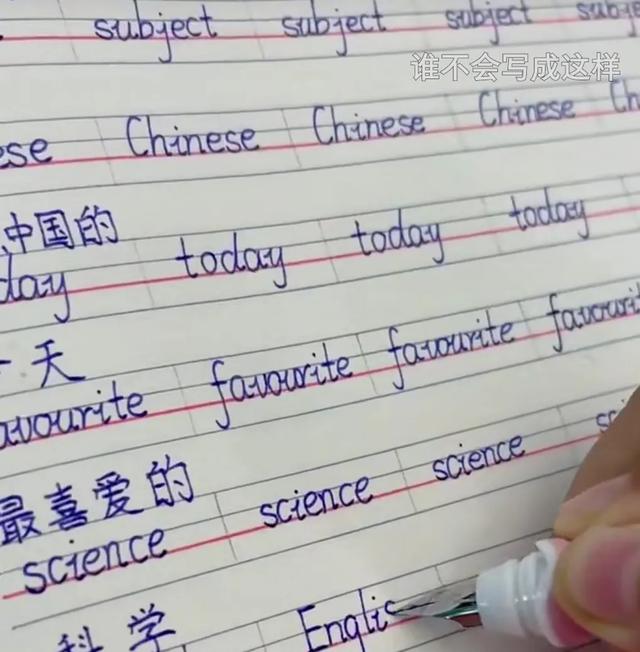 subject subject subject subje
谁不会写成这样
ese Chinese Chinese Chinese Ch
中国的
day today today today
一天
avourite favourite favourite favouri
最喜爱的
science science science sc
科学
Englis